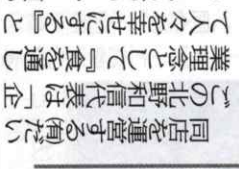 同店を運営する㈲だい
ごの北野和信代表は「企
業理念として『食を通し
て人々を幸せにする』と